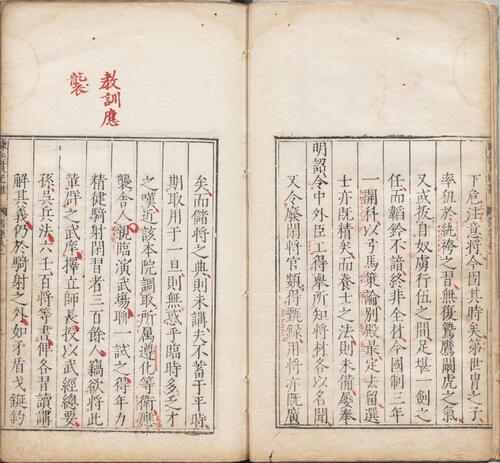 下危注意將今固其時矣第世胄之子
率紐於紈袴之習無復鷙鷹闞虎之氣
又或拔自奴虜行伍之間足堪一劍之
任而韜鈐不諳終非全材今國制三年
一開科以弓馬策論別殿最定去留選
士亦既精矣而養士之法則未備屢奉
明詔令中外臣工得舉所知將材各以名聞
又令廢閒將官類得甄錄用將亦既廣
教訓應
襲
矣而儲將之典則未講夫不蓄于平時
期取用于一旦則無惑乎臨時多乏才
之嘆近該本院調取所属遵化等衛應
襲舍人親臨演武塲聊一試之得年力
精健騎射閑習者三百餘人竊欲將此
輩群之武庠擇立師長授以武經總要
孫吳兵法六壬百將等書俾各習讀講
解其義仍於騎射之外如矛盾戈鋋鈎